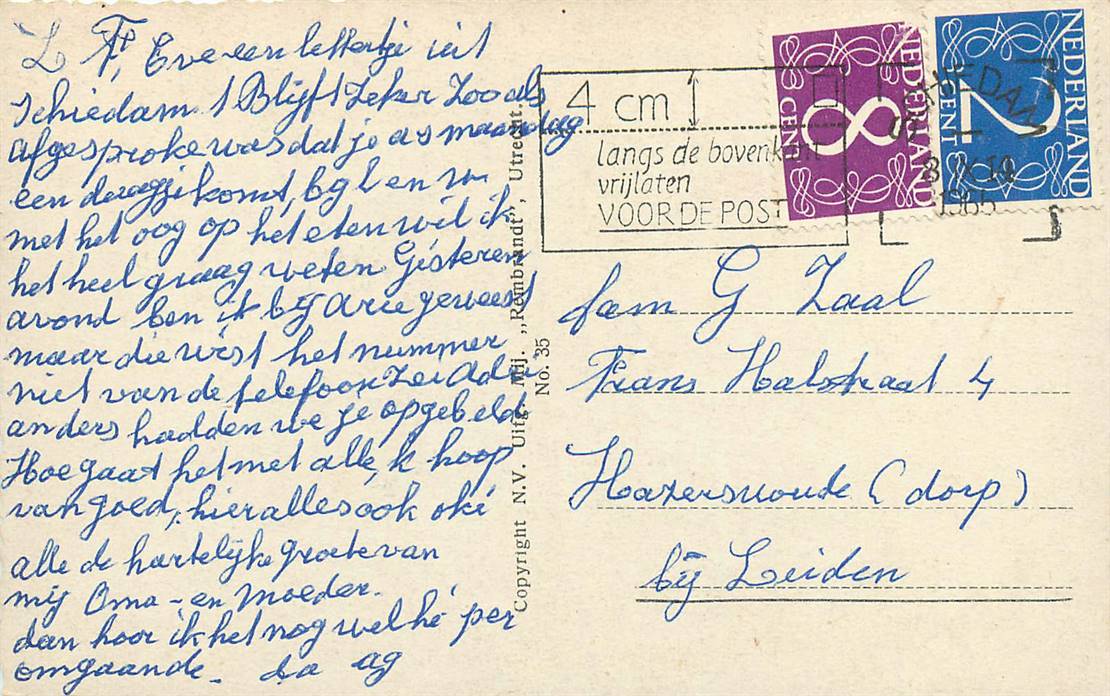 L F, Eve een lettertje uit
Schiedam 't Blijft zeker zoo als
afgesproke was dat je as maandag
een daagje komt, bgl en w
met het oog op het eten wil ik
het heel graag weten Gisteren
avond ben ik bij Arie geweest
maar die wist het nummer
niet van de telefoon zei Ada
anders hadden we je opgebeld
Hoe gaat het met alle, k hoop
van goed, hier alles ook oké
alle de hartelijke groete van
mij Oma - en Moeder.
dan hoor ik het nog wel hé per
omgaande. da ag
Copyright N.V. Uitg. Mij. „Rembrandt”, Utrecht.
No. 35
4 cm
langs de bovenkant
vrijlaten
VOOR DE POST
NEDERLAND
8
CENT
NEDERLAND
2
CENT
SCHIEDAM
1965
fam G Zaal
Frans Halsstraat 4
Hazerswoude (dorp)
bij Leiden